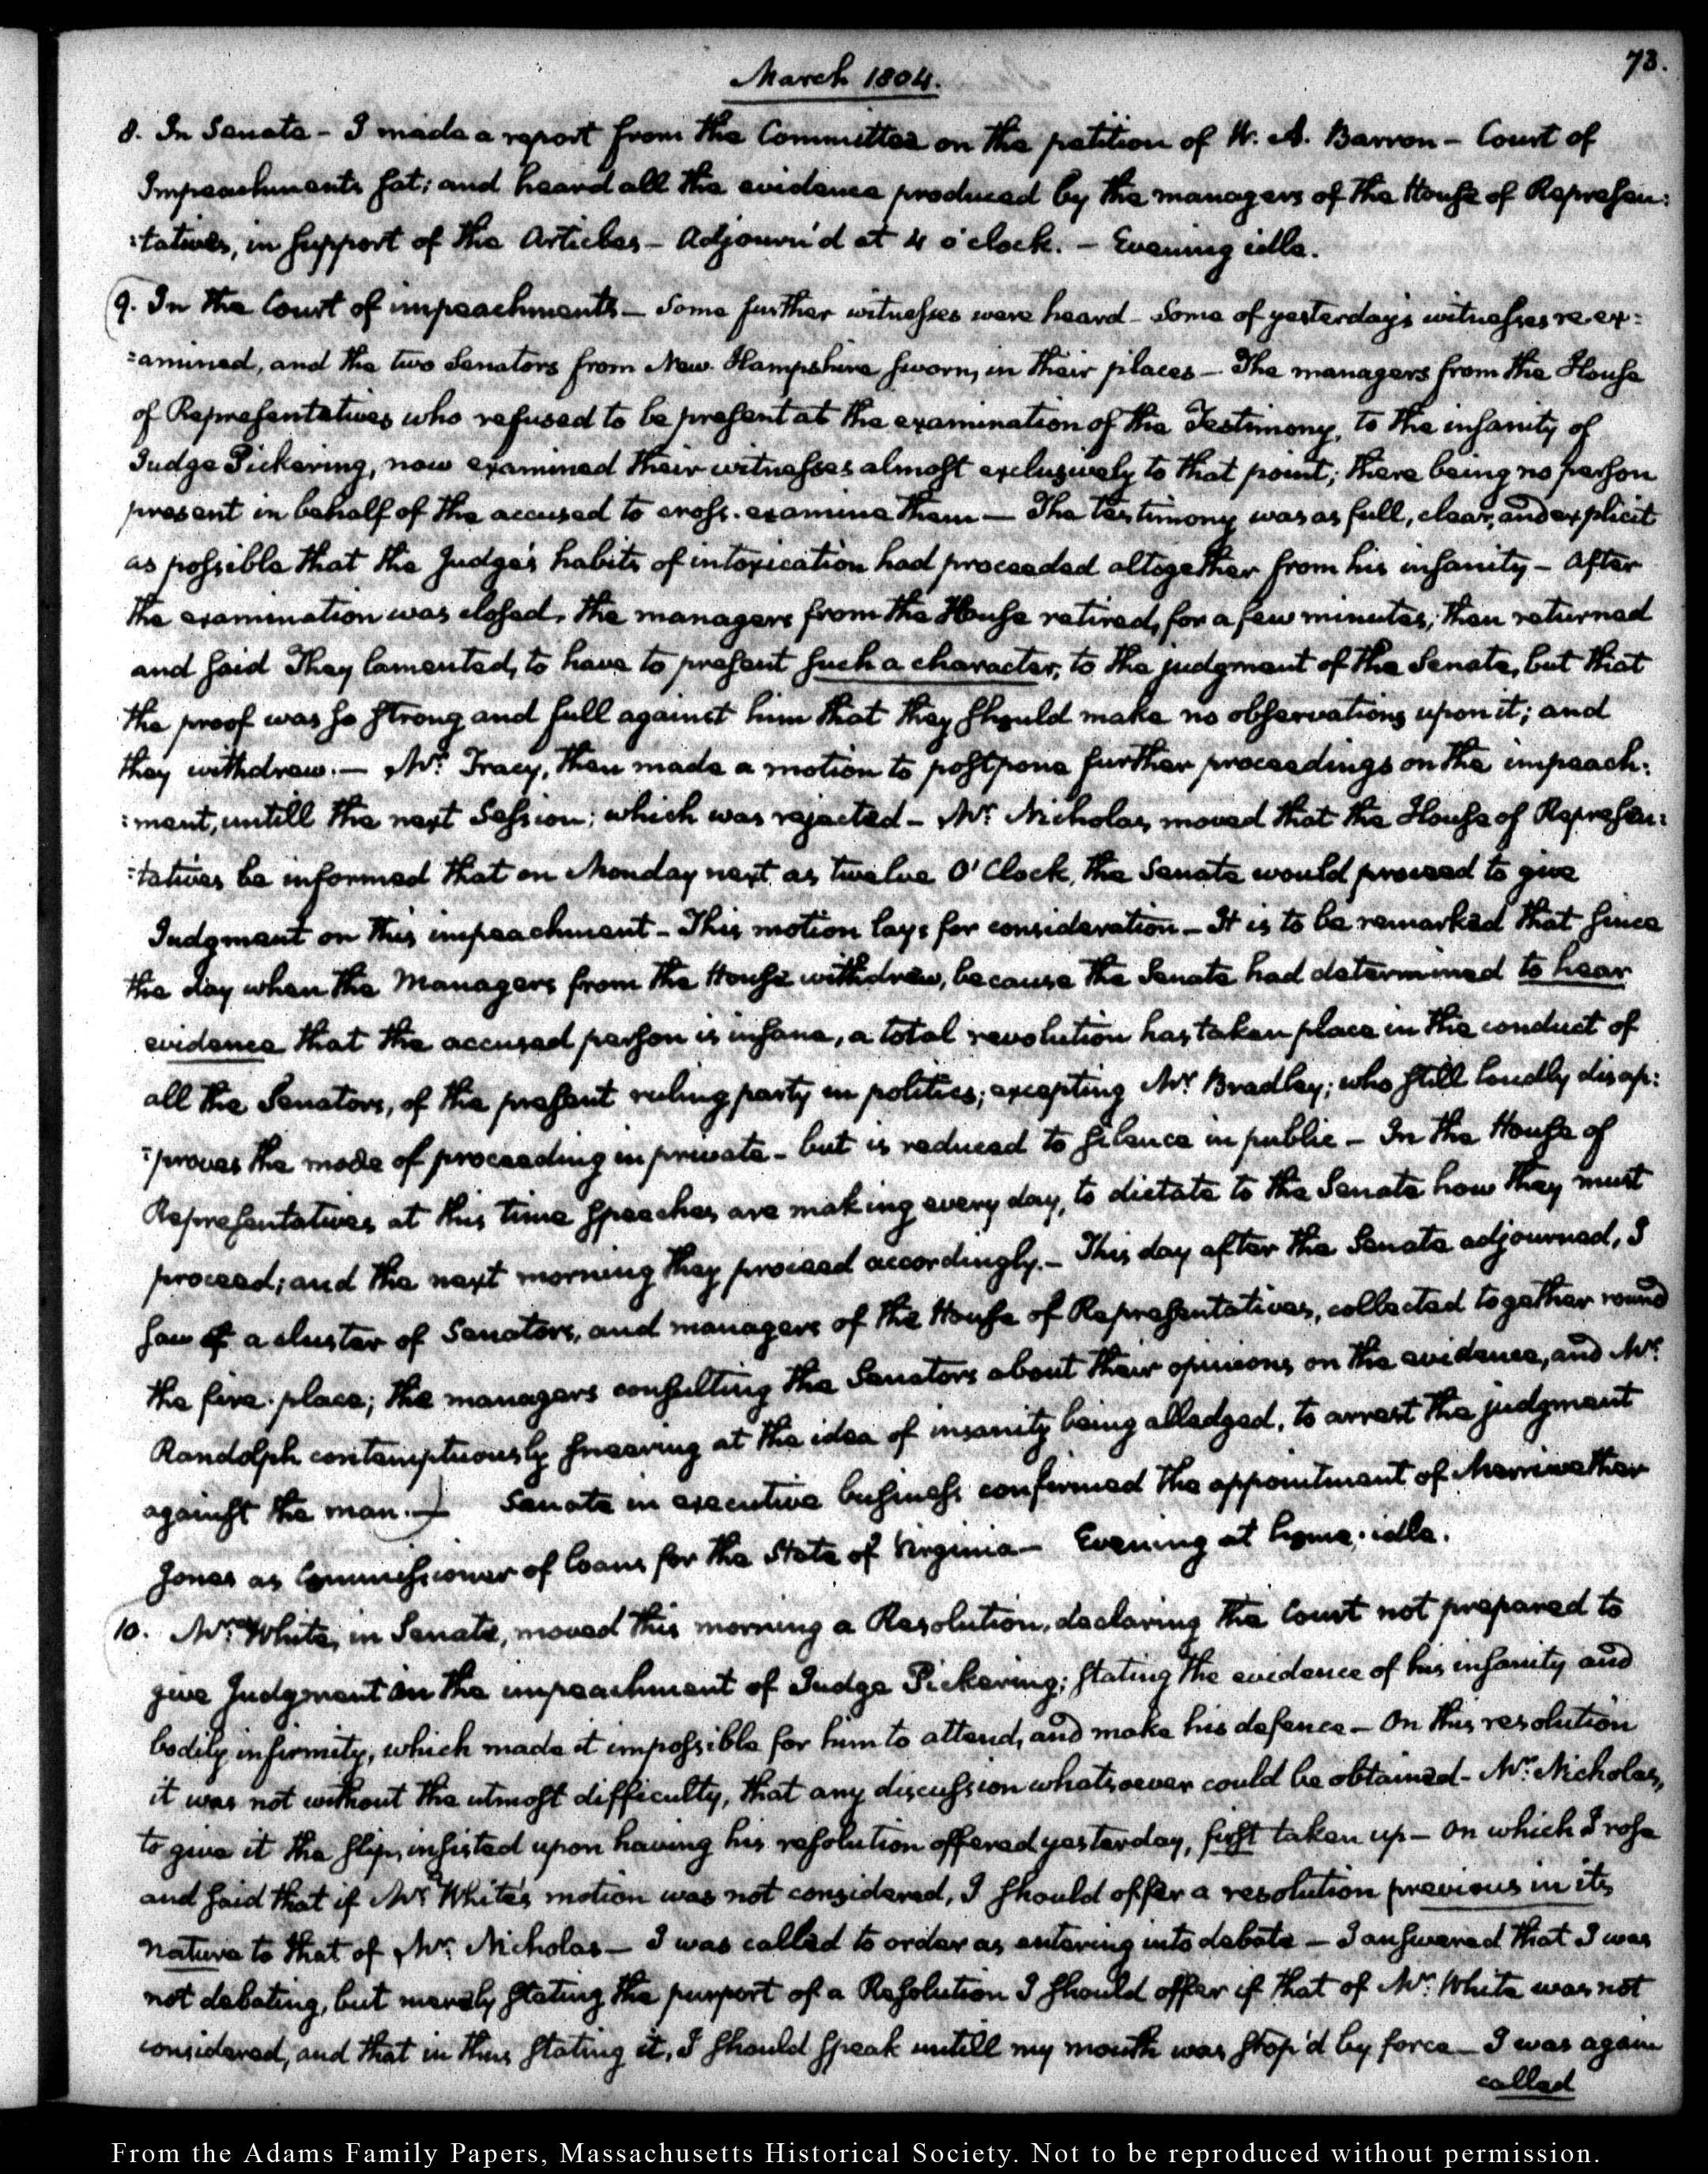 73.
March 1804.
8. In Senate - I made a report from the Committee on the petition of W. A. Barron - Court of
Impeachments sat; and heard all the evidence produced by the managers of the House of Represen:
:tatives, in support of the Articles - Adjourn'd at 4 o'clock. - Evening idle.
9. In the Court of impeachments - Some further witnesses were heard - Some of yesterday's witnesses re-ex:
:amined, and the two Senators from New-Hampshire sworn, in their places - The managers from the House
of Representatives who refused to be present at the examination of the Testimony, to the insanity of
Judge Pickering, now examined their witnesses almost exclusively to that point; there being no person
present in behalf of the accused to cross-examine them - The testimony was as full, clear, and explicit
as possible that the Judge's habits of intoxication had proceeded altogether from his insanity - After
the examination was closed, the managers from the House retired, for a few minutes; then returned
and said They lamented, to have to present such a character, to the judgment of the Senate, but that
the proof was so strong and full against him that they should make no observations upon it; and
they withdrew. - Mr. Tracy, then made a motion to postpone further proceedings on the impeach:
:ment, untill the next Session; which was rejected - Mr. Nicholas, moved that the House of Represen:
:tatives be informed that on Monday next, as twelve O'Clock, the Senate would proceed to give
Judgment on this impeachment - This motion lays for consideration - It is to be remarked that since
the day when the Managers from the House withdrew, because the Senate had determined to hear
evidence that the accused person is insane, a total revolution has taken place in the conduct of
all the Senators, of the present ruling party in politics; excepting Mr. Bradley; who still loudly disap:
:proves the mode of proceeding in private - but is reduced to silence in public - In the House of
Representatives at this time speeches are making every day, to dictate to the Senate how they must
proceed; and the next morning they proceed accordingly. - This day after the Senate adjourned, I
saw a cluster of Senators, and managers of the House of Representatives, collected together round
the fire-place; the managers consulting the Senators about their opinions on the evidence, and Mr.
Randolph contemptuously sneering at the idea of insanity being alledged, to arrest the judgment
against the man. - Senate in executive business confirmed the appointment of Merriwether
Jones as Commissioner of loans for the State of Virginia - Evening at home. idle.
10. Mr. White, in Senate, moved this morning a Resolution, declaring the Court not prepared to
give Judgment on the impeachment of Judge Pickering; stating the evidence of his insanity and
bodily infirmity, which made it impossible for him to attend, and make his defence - On this resolution
it was not without the utmost difficulty, that any discussion whatsoever could be obtained - Mr. Nicholas,
to give it the slip, insisted upon having his resolution offered yesterday, first taken up - On which I rose
and said that if Mr. White's motion was not considered, I should offer a resolution previous in its
nature to that of Mr. Nicholas - I was called to order as entering into debate - I answered that I was
not debating, but merely stating the purport of a Resolution I should offer if that of Mr. White was not
considered, and that in thus stating it, I should speak untill my mouth was stop'd by force - I was again
called
From the Adams Family Papers, Massachusetts Historical Society. Not to be reproduced without permission.